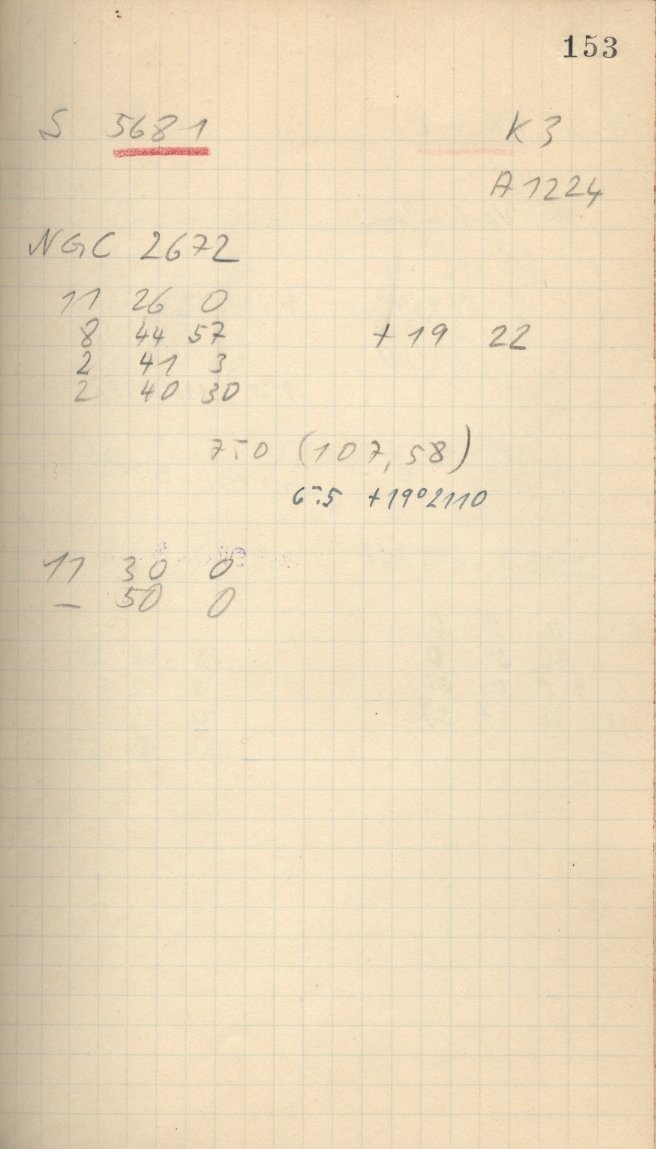 153
S 5681 K3
A 1224
NGC 2672
11 26 0
8 44 57 +19 22
2 41 3
2 40 30
7.0 (107,58)
6.5 +19°2110
11 30 0
— 50 0